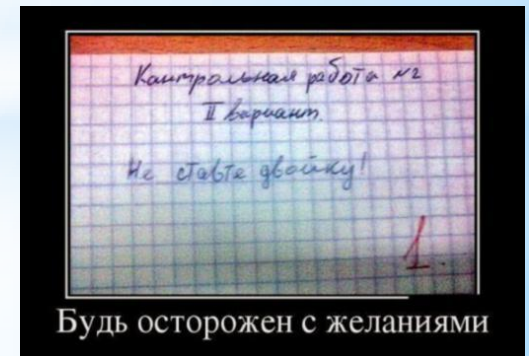 Контрольная работа №2
II вариант.
Не ставте двойку!
1
Будь осторожен с желаниями